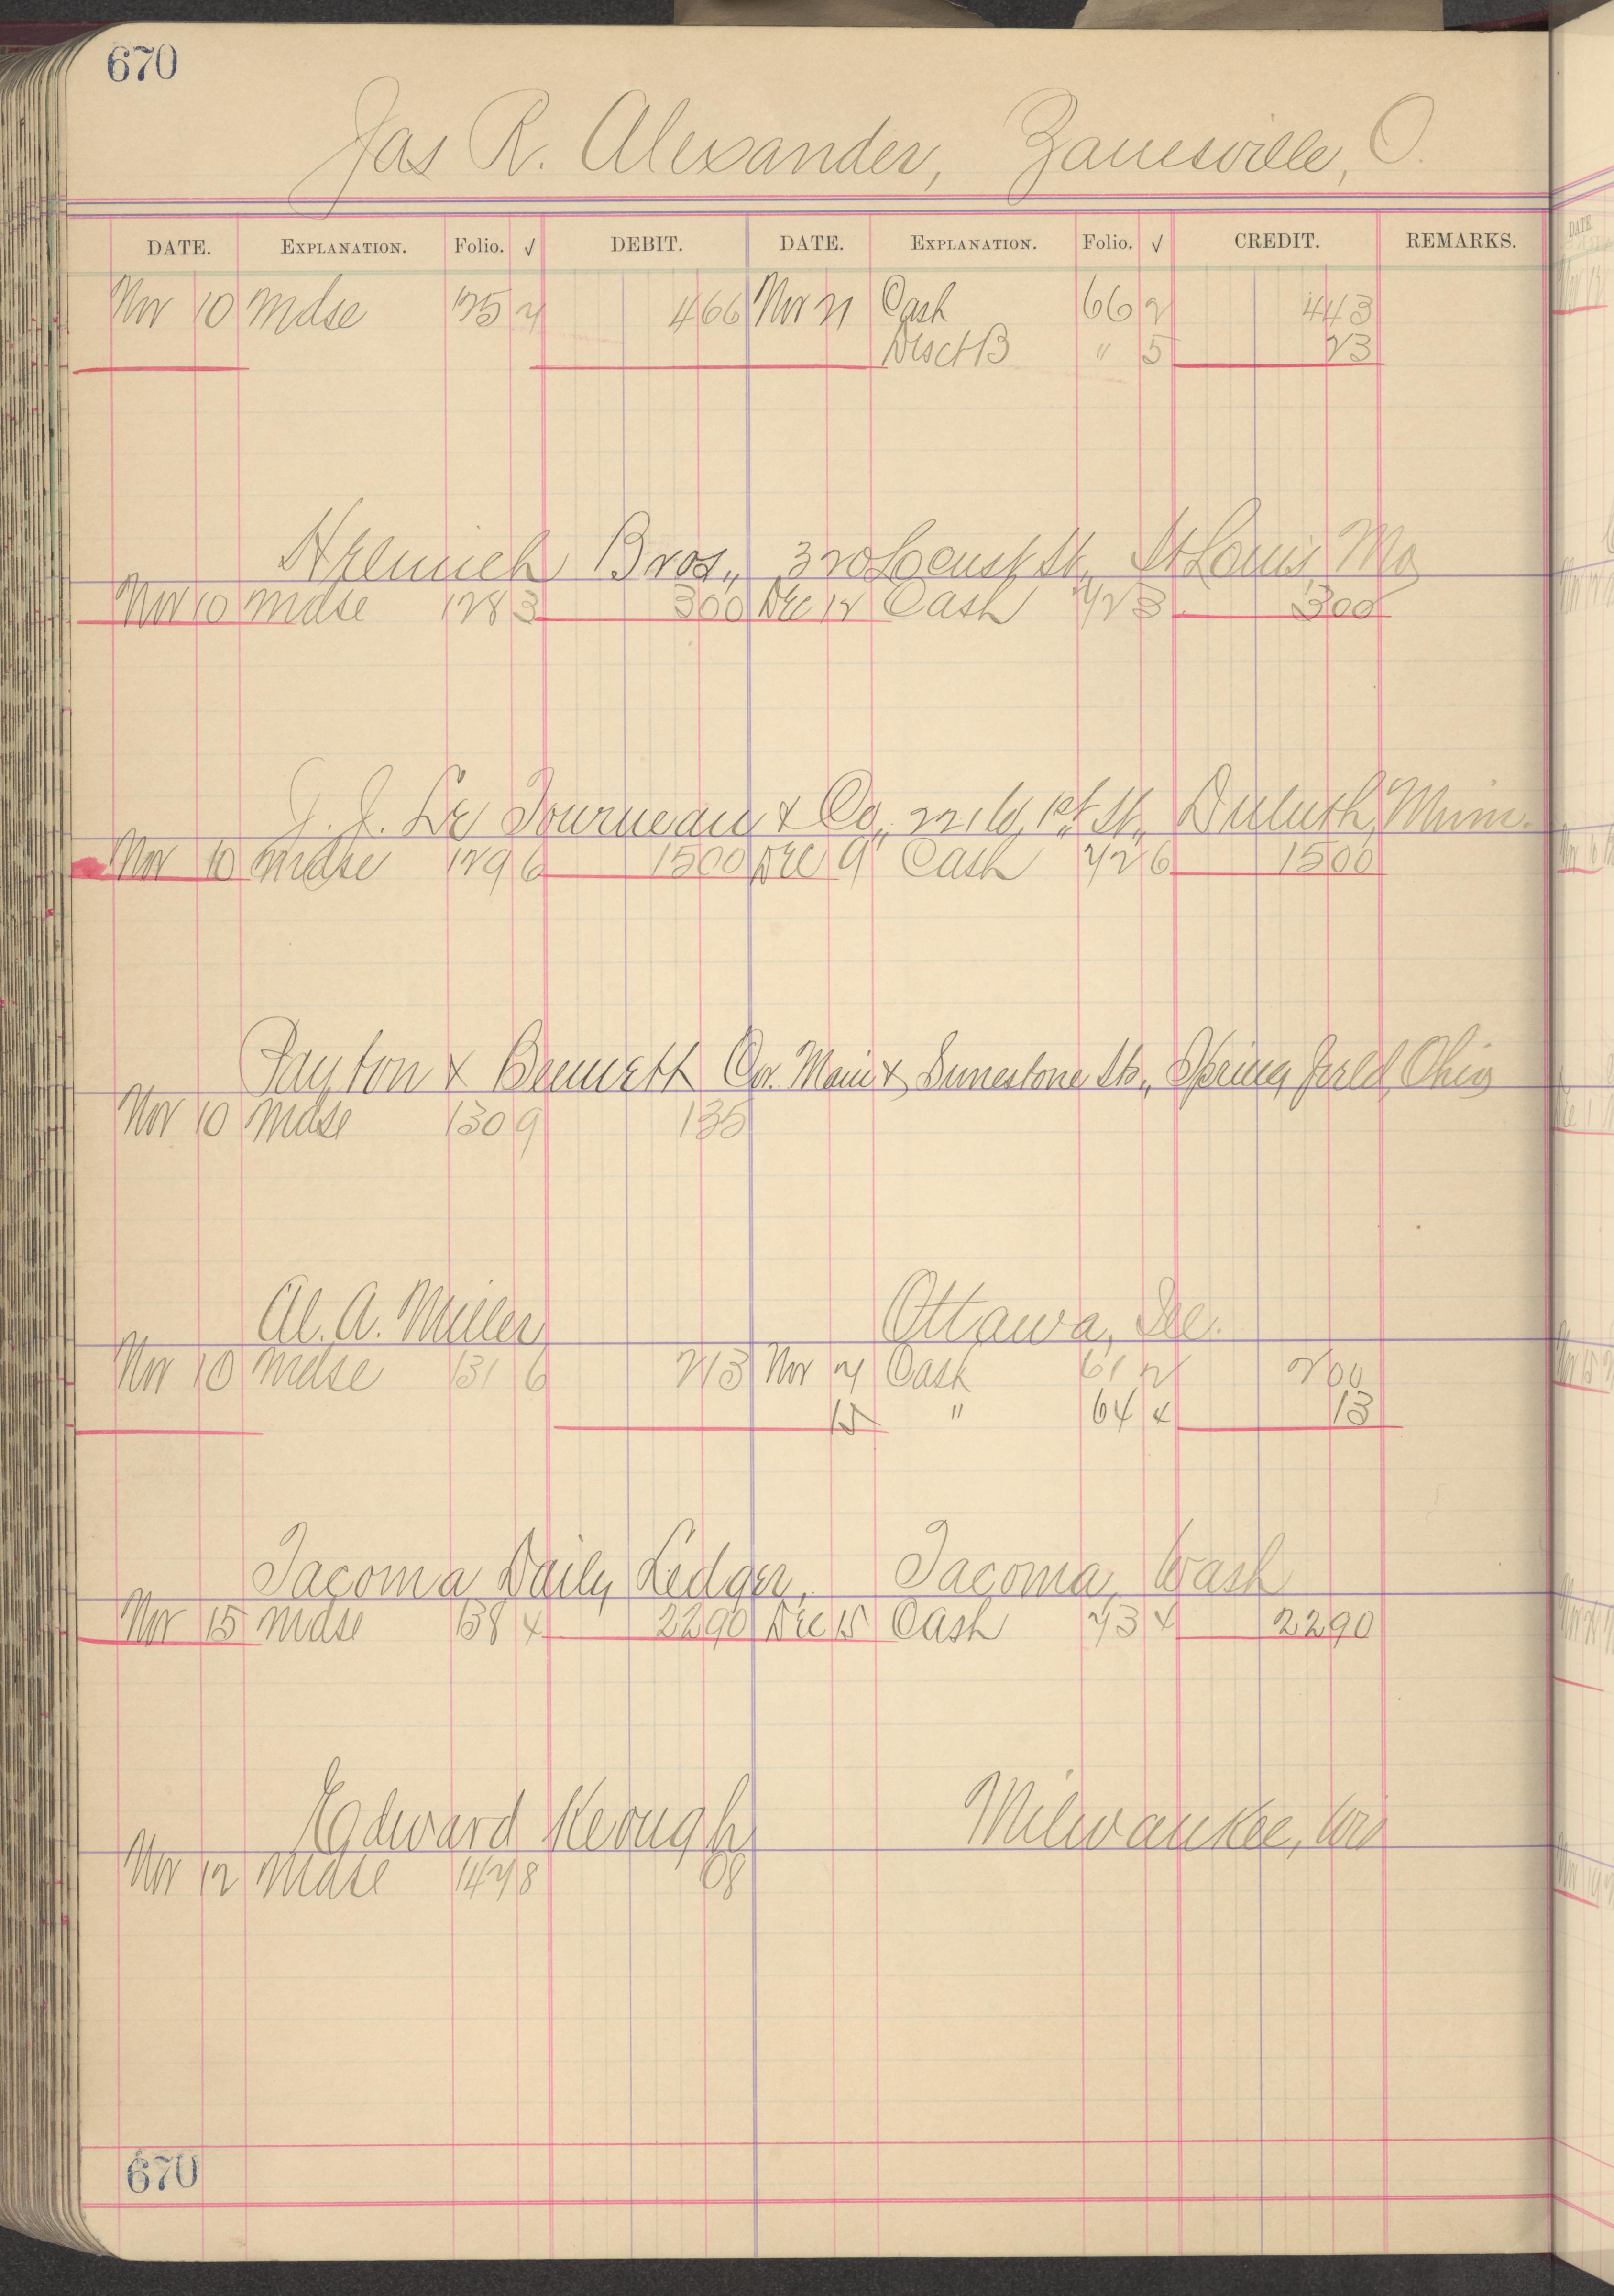 670
Jas R. Alexander, Zanesville, O.
DATE. EXPLANATION. Folio. √ DEBIT. DATE. EXPLANATION. Folio. √ CREDIT. REMARKS.
Nov 10 Mdse 125 4 66 Nov 21 Cash 66 2 4 43
Disct B " 5 23
Bros., 320 Locust St., St Louis, Mo
Nov 10 Mdse 128 3 3 00 Dec 12 Cash 72 3 3 00
J. J. Le Tourneau & Co., 221 W. 1st St., Duluth, Minn.
Nov 10 Mdse 129 6 15 00 Dec 9 Cash 72 6 15 00
Payton & Bennett Cor. Main & Limestone Sts., Springfield, Ohio
Nov 10 Mdse 130 9 1 35
Al. A. Miller Ottawa, Ill.
Nov 10 Mdse 131 6 2 13 Nov 7 Cash 61 2 2 00
15 " 64 4 13
Tacoma Daily Ledger, Tacoma, Wash
Nov 15 Mdse 138 4 22 90 Dec 15 Cash 73 4 22 90
Edward Keough Milwaukee, Wis
Nov 12 Mdse 147 8 08
670